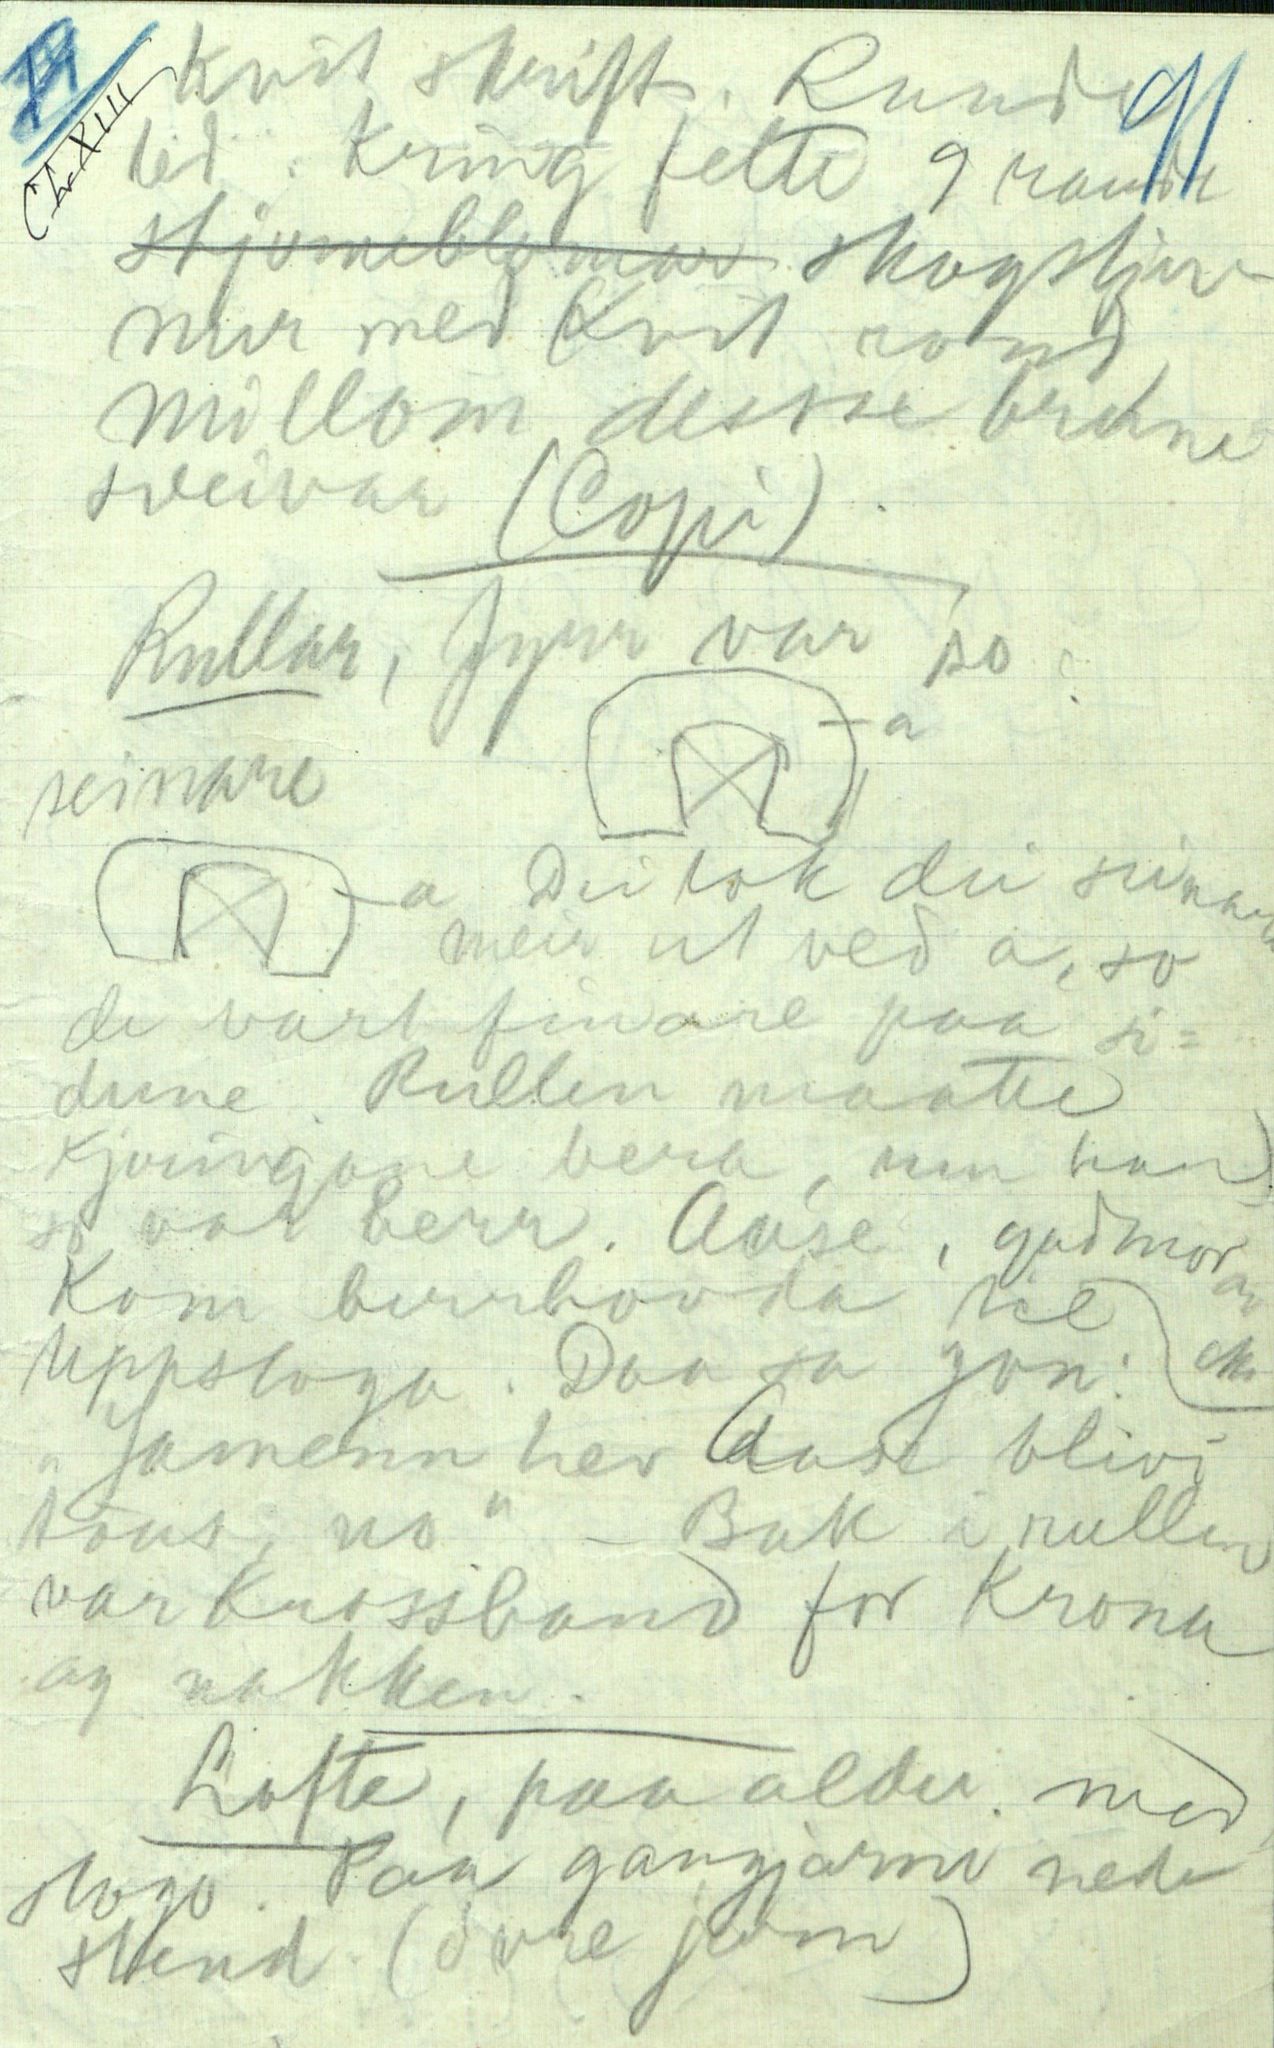 91
Ch. XIII
Kvit skrift. Runde
led. Kring felte 9 raude
stjorneblomar skogstjør-
nur med kvit rand
millom desse bredne
sveivar (Copi).
Rullar, fyrr var so:
a
seinare
a Dei tok dei seinare
meir ut ved a, so
de vart finare paa si=
dune. Rullen maatte
kjøringane bera, um han
so var berr. Aase, godmor
kom berrhovda til
Uppstoga. Daa sa Jon:
"Jamenn her Aase blivi
taus, no" - Bak i rullen
var krossband for krona
og nakken.
Lofte, paa alder med
stogo. Paa gangjarni nede
stend (øvre jarn)